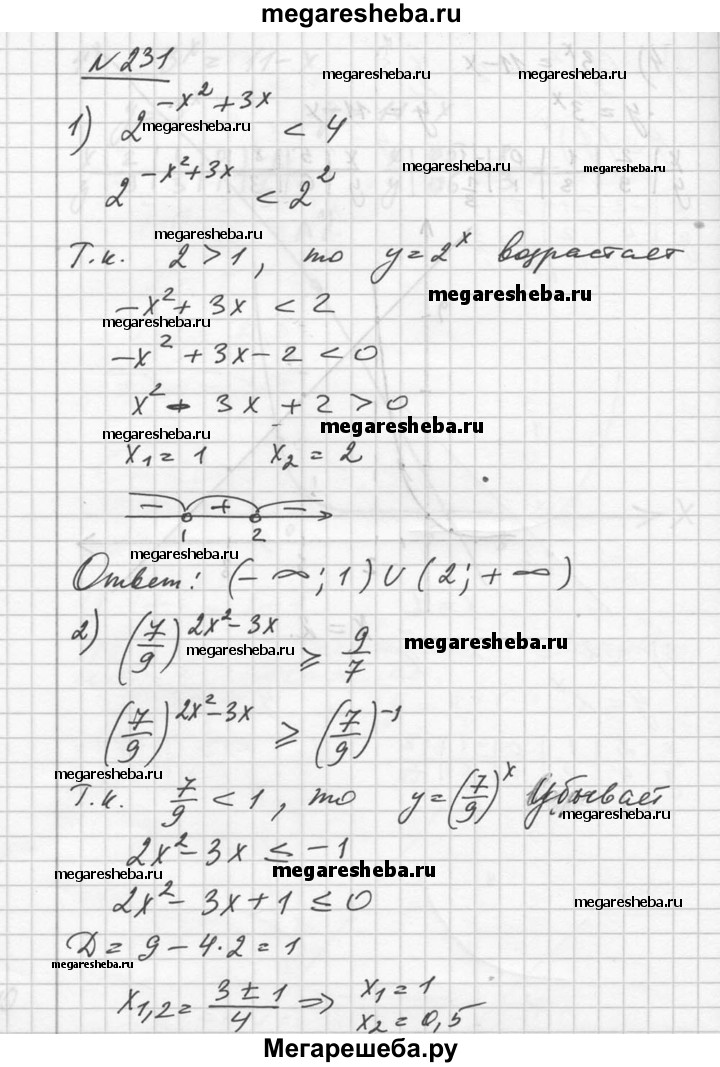 megaresheba.ru
N 231
megaresheba.ru
megaresheba.ru
1) 2^(-x²+3x) < 4
megaresheba.ru
2^(-x²+3x) < 2²
megaresheba.ru
megaresheba.ru
Т.к. 2 > 1, то y = 2^x возрастает
-x² + 3x < 2
megaresheba.ru
megaresheba.ru
-x² + 3x - 2 < 0
x² - 3x + 2 > 0
megaresheba.ru
megaresheba.ru
x₁ = 1 x₂ = 2
- + -
1 2
megaresheba.ru
Ответ: (-∞; 1) ∪ (2; +∞)
2) (7/9)^(2x²-3x) ≥ 9/7
megaresheba.ru
megaresheba.ru
(7/9)^(2x²-3x) ≥ (7/9)^(-1)
megaresheba.ru
Т.к. 7/9 < 1, то y = (7/9)^x убывает
megaresheba.ru
2x² - 3x ≤ -1
megaresheba.ru
megaresheba.ru
2x² - 3x + 1 ≤ 0
megaresheba.ru
Д = 9 - 4·2 = 1
megaresheba.ru
x₁,₂ = (3 ± 1)/4 ⇒ x₁ = 1
x₂ = 0,5
Мегарешеба.ру